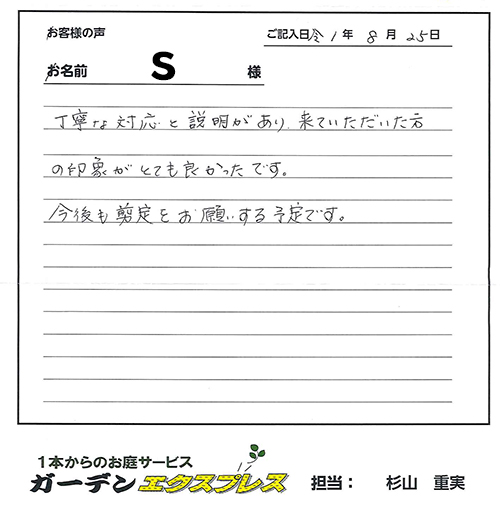 お客様の声
ご記入日 令1年 8月 25日
お名前 S 様
丁寧な対応と説明があり、来ていただいた方
の印象がとても良かったです。
今後も剪定をお願いする予定です。
1本からのお庭サービス
ガーデンエクスプレス 担当： 杉山 重実